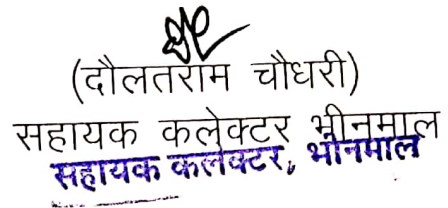 (दौलतराम चौधरी)
सहायक कलेक्टर भीनमाल
सहायक कलेक्टर, भीनमाल